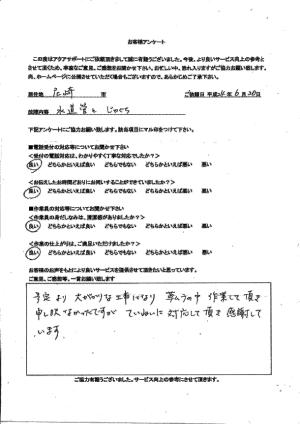 お客様アンケート
この度はアクアサポートにご依頼頂きまして誠に有難うございました。今後、より良いサービス向上の参考と
させて頂くため、率直なご意見、ご感想をお聞かせ下さい。お忙しい中、恐れ入りますがご協力お願い致します。
尚、ホームページに公開させていただく場合もございますので、あらかじめご了承下さい。
居住地 市 ご依頼日 平成24年6月20日
故障内容 水道管と じゃぐち
下記アンケートにご協力お願い致します。該当項目にマル印をつけて下さい。
■電話受付の対応等についてお聞かせ下さい
<受付の電話対応は、わかりやすく丁寧な対応でしたか？>
良い どちらかといえば良い どちらかといえば悪い 悪い
<お伝えしたお時間どおりにお伺いすることができていましたか？>
良い どちらかといえば良い どちらかといえば悪い 悪い
■作業員の対応等についてお聞かせ下さい
<作業員の身だしなみは、清潔感がありましたか？>
良い どちらかといえば良い どちらかといえば悪い 悪い
<作業の仕上がりは、ご満足いただけましたか？>
良い どちらかといえば良い どちらかといえば悪い 悪い
お客様のお声をもとにより良いサービスを提供させて頂きたいと思っています。
ご意見、ご感想等、一言お願い致します
予定より 大がかりな工事になり 暑い中 作業して頂き
申し訳なかったですが ていねいに 対応して頂き 感謝して
います。
ご協力有難うございました。サービス向上の参考にさせて頂きます。